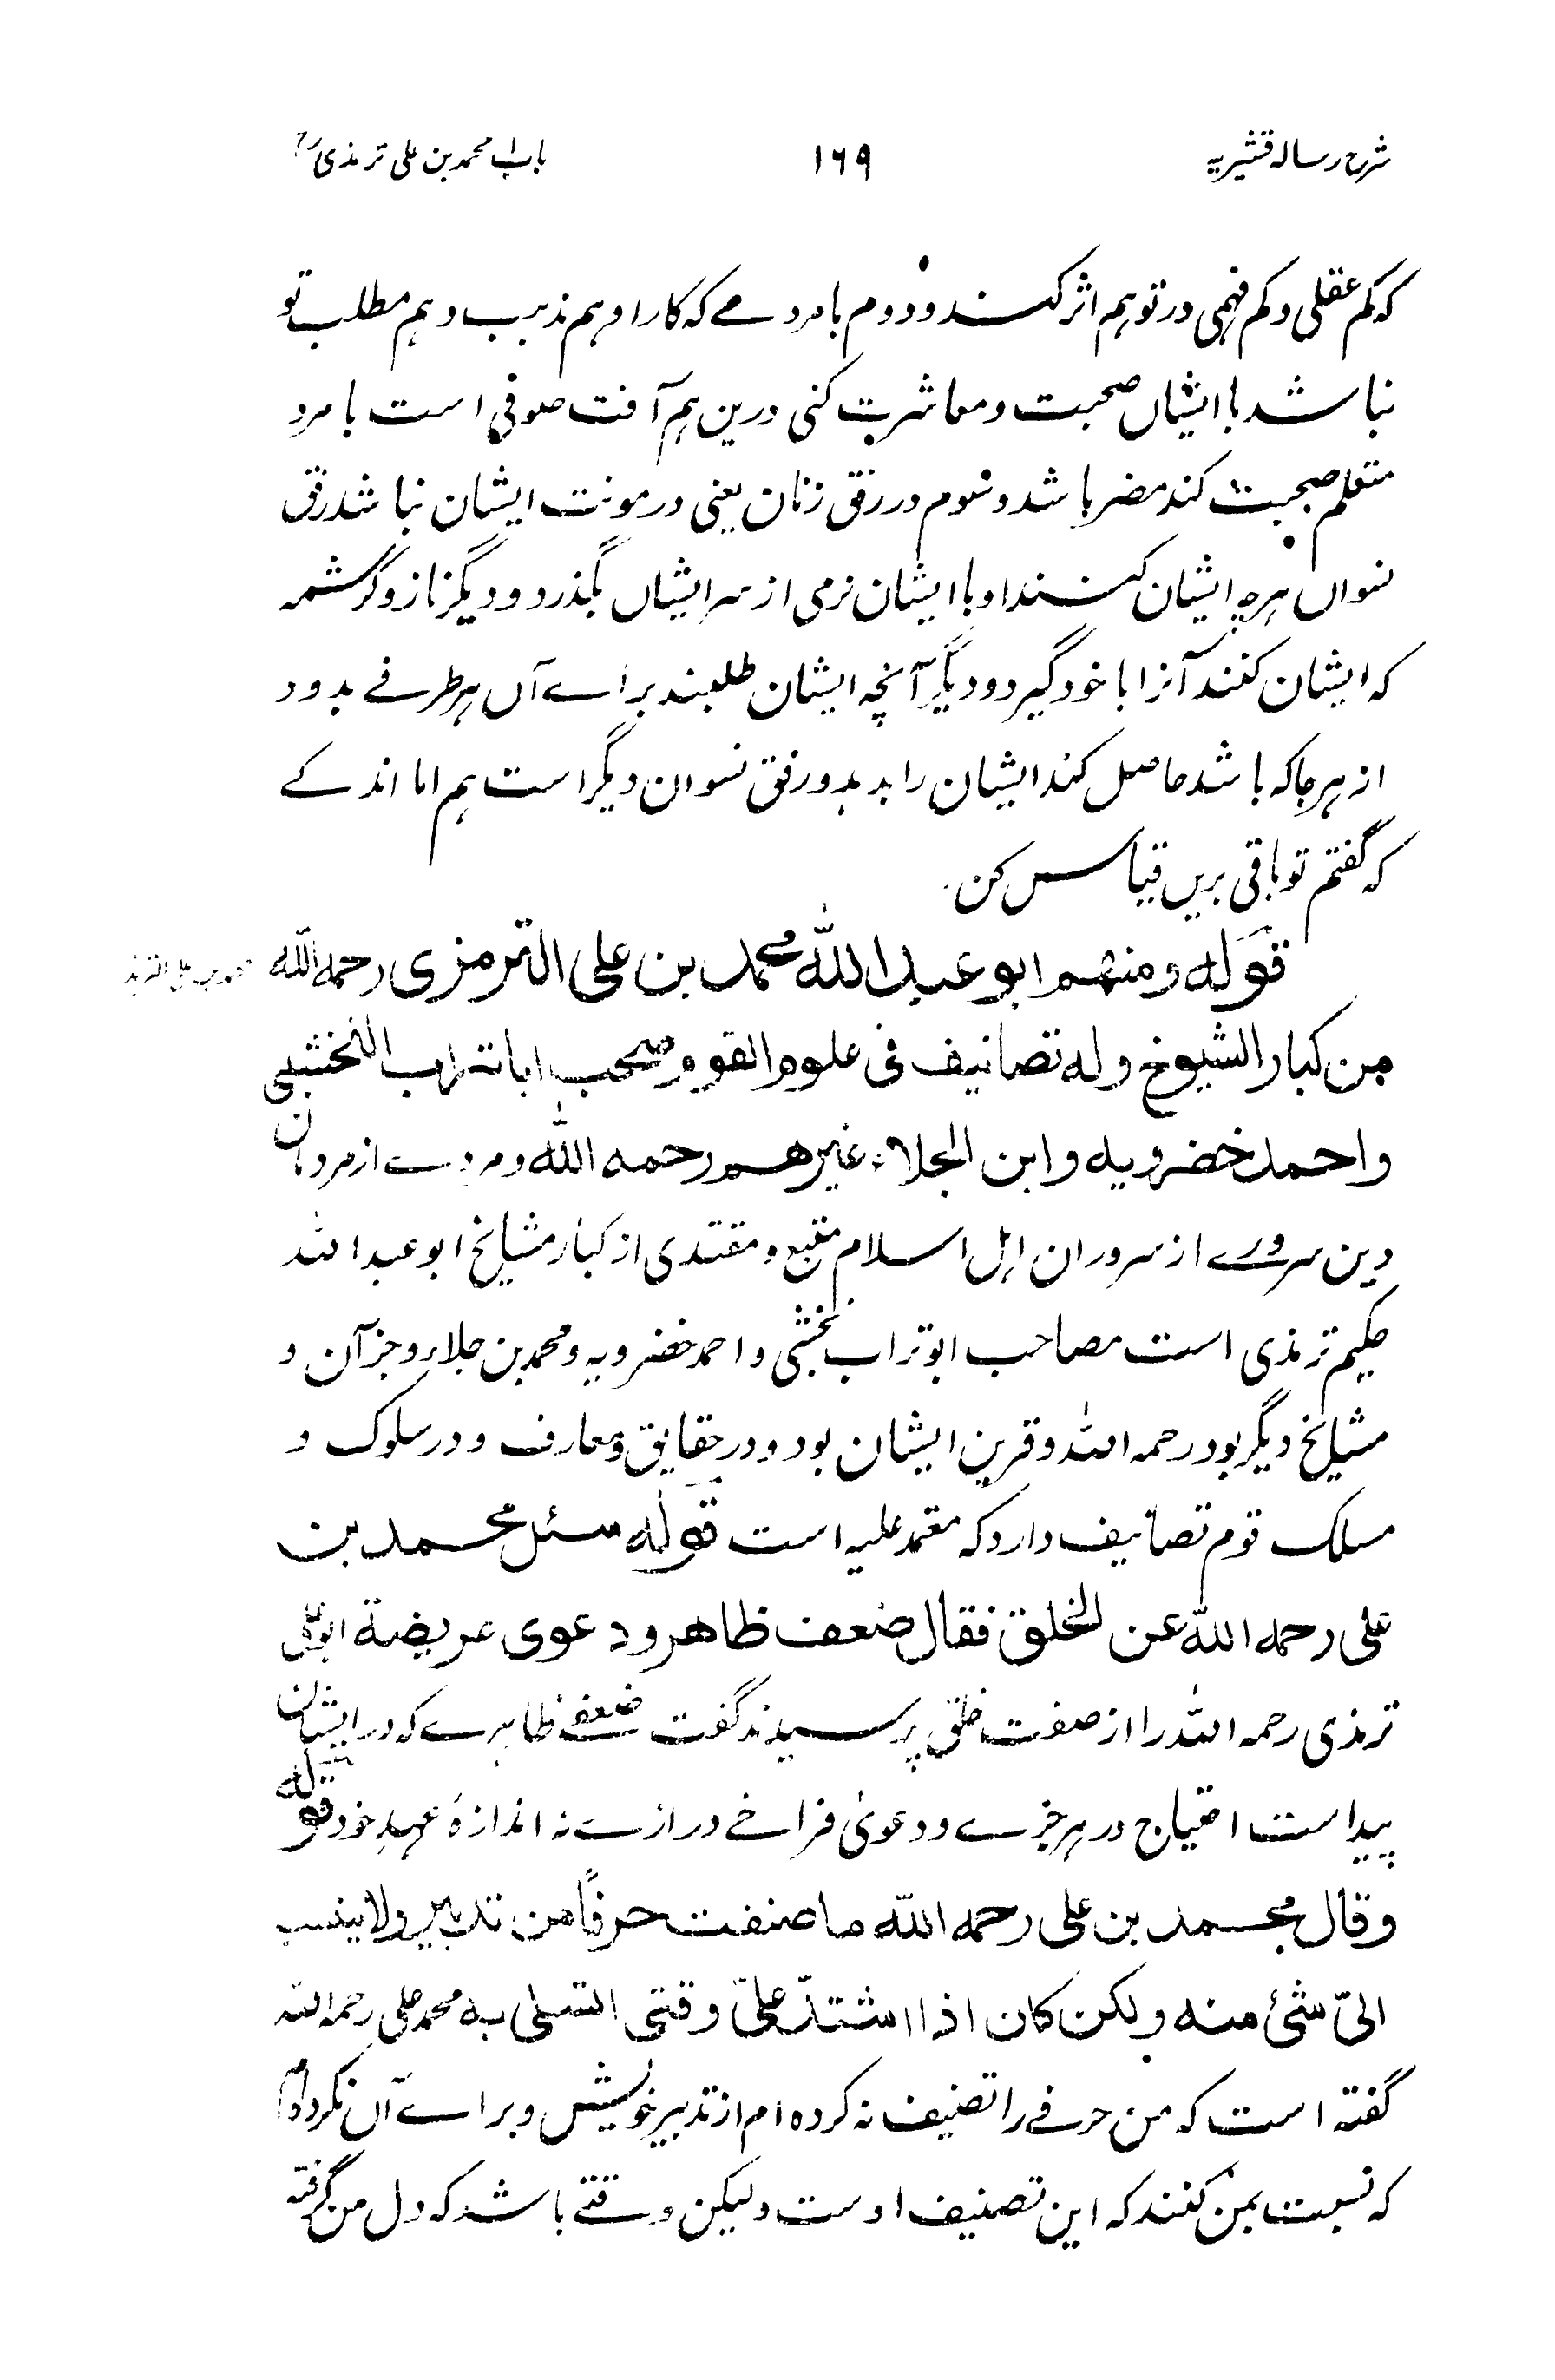 شرح رساله قشیریه
۱۶۹
باب محمد بن علی ترمذی رح
که کم عقلی و کم فهمی در تو هم اثر کند و دوم با مردمے که کار او هم مذہب و هم مطلب تو
نباشد با ایشاں صحبت و معاشرت کنی درین هم آفت صوفی است با مرد
متعلم صحبت کند مضر باشد و سوم در رفق زنان یعنی در مونت ایشان نباشد رفق
نسواں هرچه ایشان کنند او با ایشان نرمی از سر ایشاں بگذرد و دیگر ناز و کرشمه
که ایشان کنند آنرا با خود گیرد و دیگر آنچه ایشان طلبند براے آں هر طرفے بدود
از هر جا که باشد حاصل کند ایشان را بدهد و رفق نسوان دیگر است هم اما اند کے
که گفتم تو باقی بریں قیاس کن.
قوله ومنهم ابو عبد الله محمد بن علی الترمزی رحمه الله
محمد بن علی الترمذی
من کبار الشیوخ وله تصانیف فی علوم القوم وصحب ابا تراب النخشبی
واحمد خضرویه وابن الجلاء غیرهم رحمه الله ومردے از مردان
دین سرورے از سروران اهل اسلام متبع و مقتدی از کبار مشایخ ابو عبد الله
حکیم ترمذی است مصاحب ابو تراب نخشبی و احمد خضرویه و محمد بن جلاء و جز آن و
مشایخ دیگر بود رحمه الله و قرین ایشان بود و در حقایق و معارف و در سلوک و
مسلک قوم تصانیف دارد که معتمد علیه است قوله سئل محمد بن
علی رحمه الله عن الخلق فقال ضعف ظاهر ودعوی عریضة ابو علی
ترمذی رحمه الله را از صفت خلق پرسیدند گفت ضعفے ظاہرے که در ایشان
پیدا ست احتیاج در هر چیزے و دعویٰ فراخے درازے نه اندازهٔ عهد خود قوله
وقال محمد بن علی رحمه الله ما صنفت حرفاً من تدبیر ولا ینسب
الیّ شئ منه ولکن کان اذا اشتدّ علیّ وقتی اتسلی به محمد علی رحمه الله
گفته است که من حرفے را تصنیف نه کرده ام از تدبیر خویش و براے آں نکرده ام
که نسبت بمن کنند که این تصنیف اوست ولیکن وقتے باشد که دل من گرفته